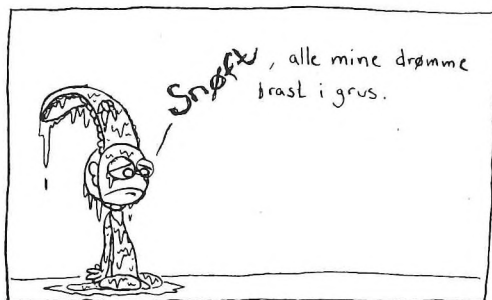 Snøft, alle mine drømme
brast i grus.